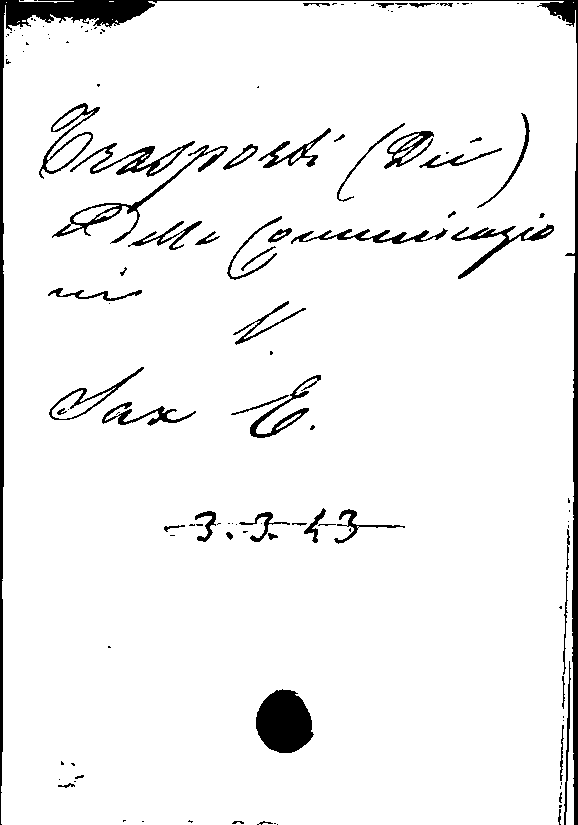 Trasporti (Dei)
e Delle Comunicazio
ni
V.
Sax E.
3.3.43